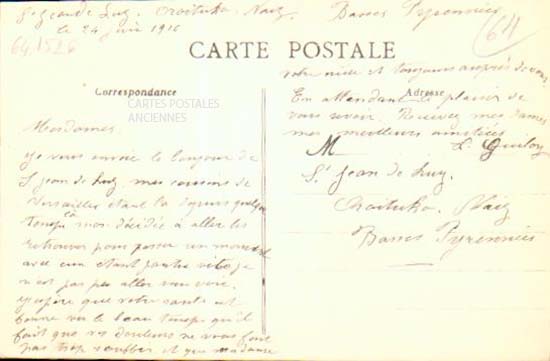 St Jean de Luz, Oraituka, Naiz Basses Pyrennées
le 24 juin 1916
64.1526
64
CARTE POSTALE
Correspondance
Adresse
CARTES POSTALES
ANCIENNES
Mesdames
Je vous envoie le bonjour de
St Jean de Luz, mes cousins de
Versailles étant là depuis quelque
temps m'ont décidée à aller les
retrouver pour passer un moment
avec eux étant partie vite je
n'ai pas pu aller vous voir.
J'espère que votre santé est
bonne vu le beau temps qu'il
fait que vos douleurs ne vous font
pas trop souffrir et que madame
votre nièce est toujours auprès de vous
En attendant le plaisir de
vous revoir. Recevez mesdames
mes meilleurs amitiées
M
St Jean de Luz
Oraituka. Naiz
Basses Pyrennées